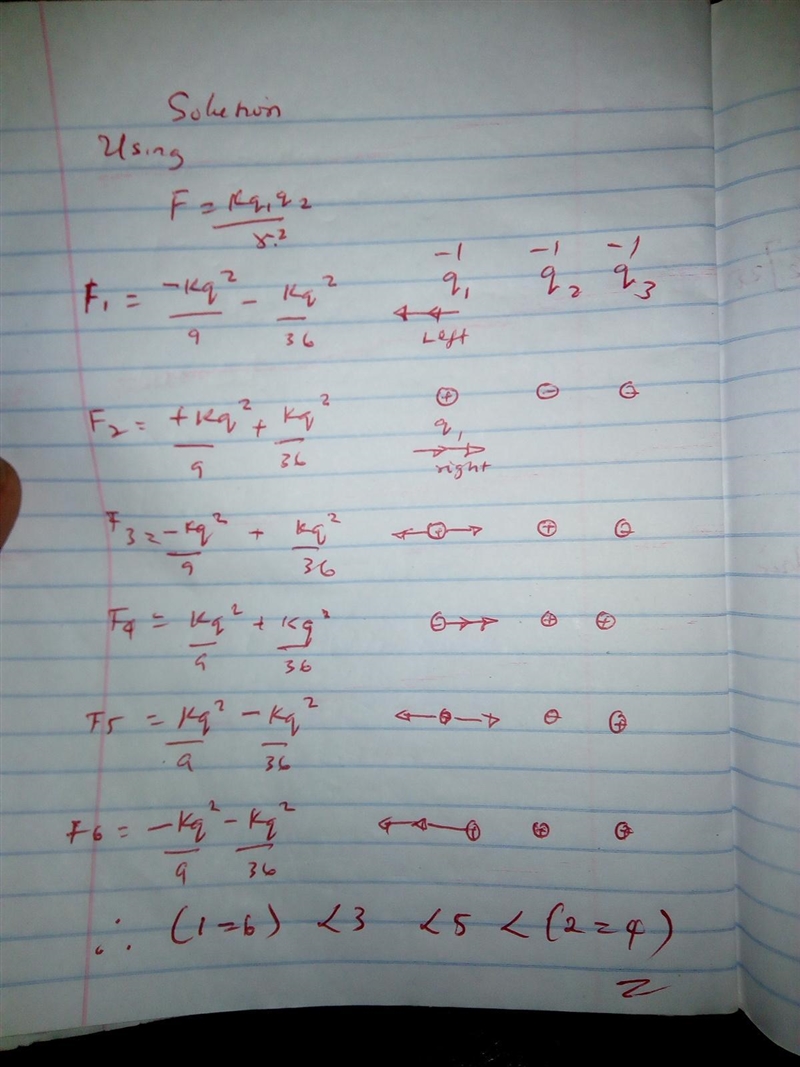 Solution
Using
F = Kq₁q₂ / r²
-1 -1 -1
F₁ = -Kq²/9 - Kq²/36 q₁ q₂ q₃
Left
F₂ = +Kq²/9 + Kq²/36 ⊕ ⊖ ⊖
q₁
right
F₃ = -Kq²/9 + Kq²/36 ⊕ ⊕ ⊖
F₄ = Kq²/9 + Kq²/36 ⊖ ⊕ ⊕
F₅ = Kq²/9 - Kq²/36 ⊖ ⊕
F₆ = -Kq²/9 - Kq²/36 ⊕ ⊕ ⊕
∴ (1=6) < 3 < 5 < (2=4)